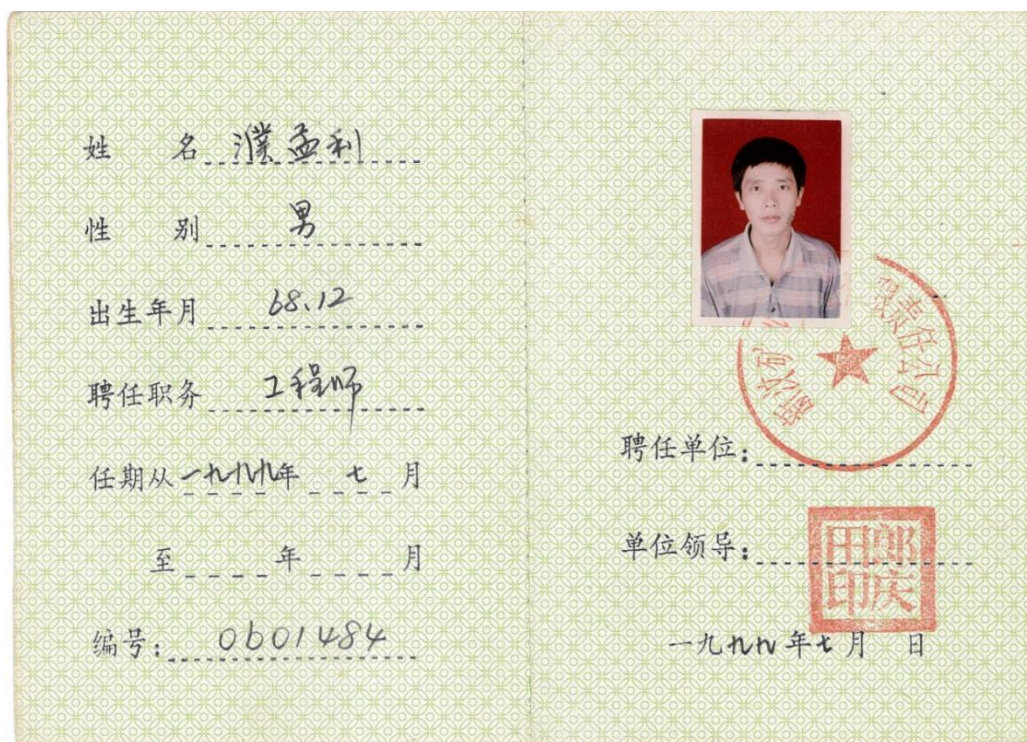 姓 名 濮孟利
性 别 男
出生年月 68.12
聘任职务 工程师
任期从一九九九年 七 月
至 年 月
编号: 0601484
责任公司
聘任单位:
单位领导:
郎庆田印
一九九九年七月 日